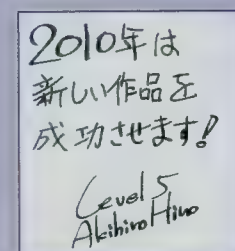 2010年は
新しい作品を
成功させます!
Level 5
Akihiro Hino